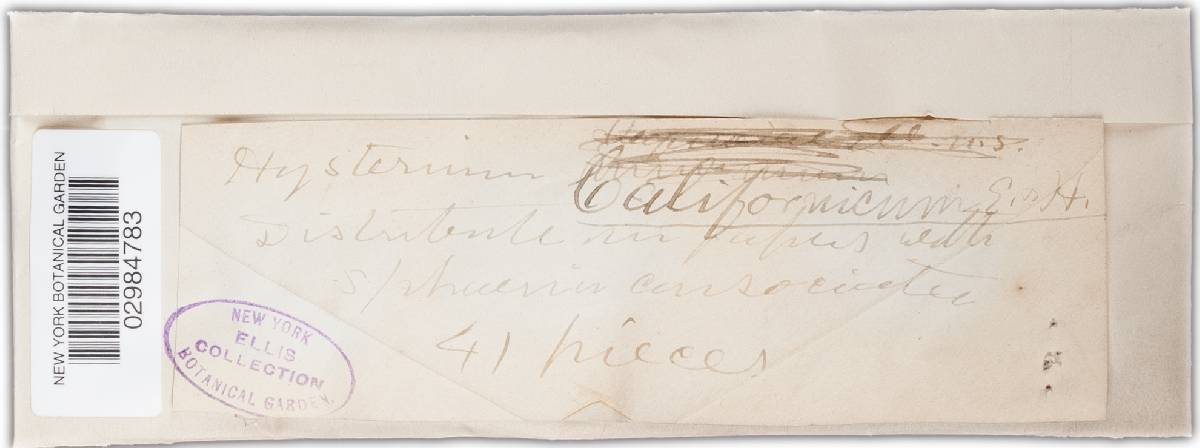 NEW YORK BOTANICAL GARDEN
02984783
n.s.
Hysterium Californicum E. & H.
Distribute in papers with
Sphaeria consociata
41 pieces
NEW YORK
ELLIS
COLLECTION
BOTANICAL GARDEN.